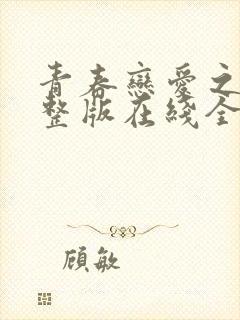 青春戀愛之
整版在綫全
顧敏